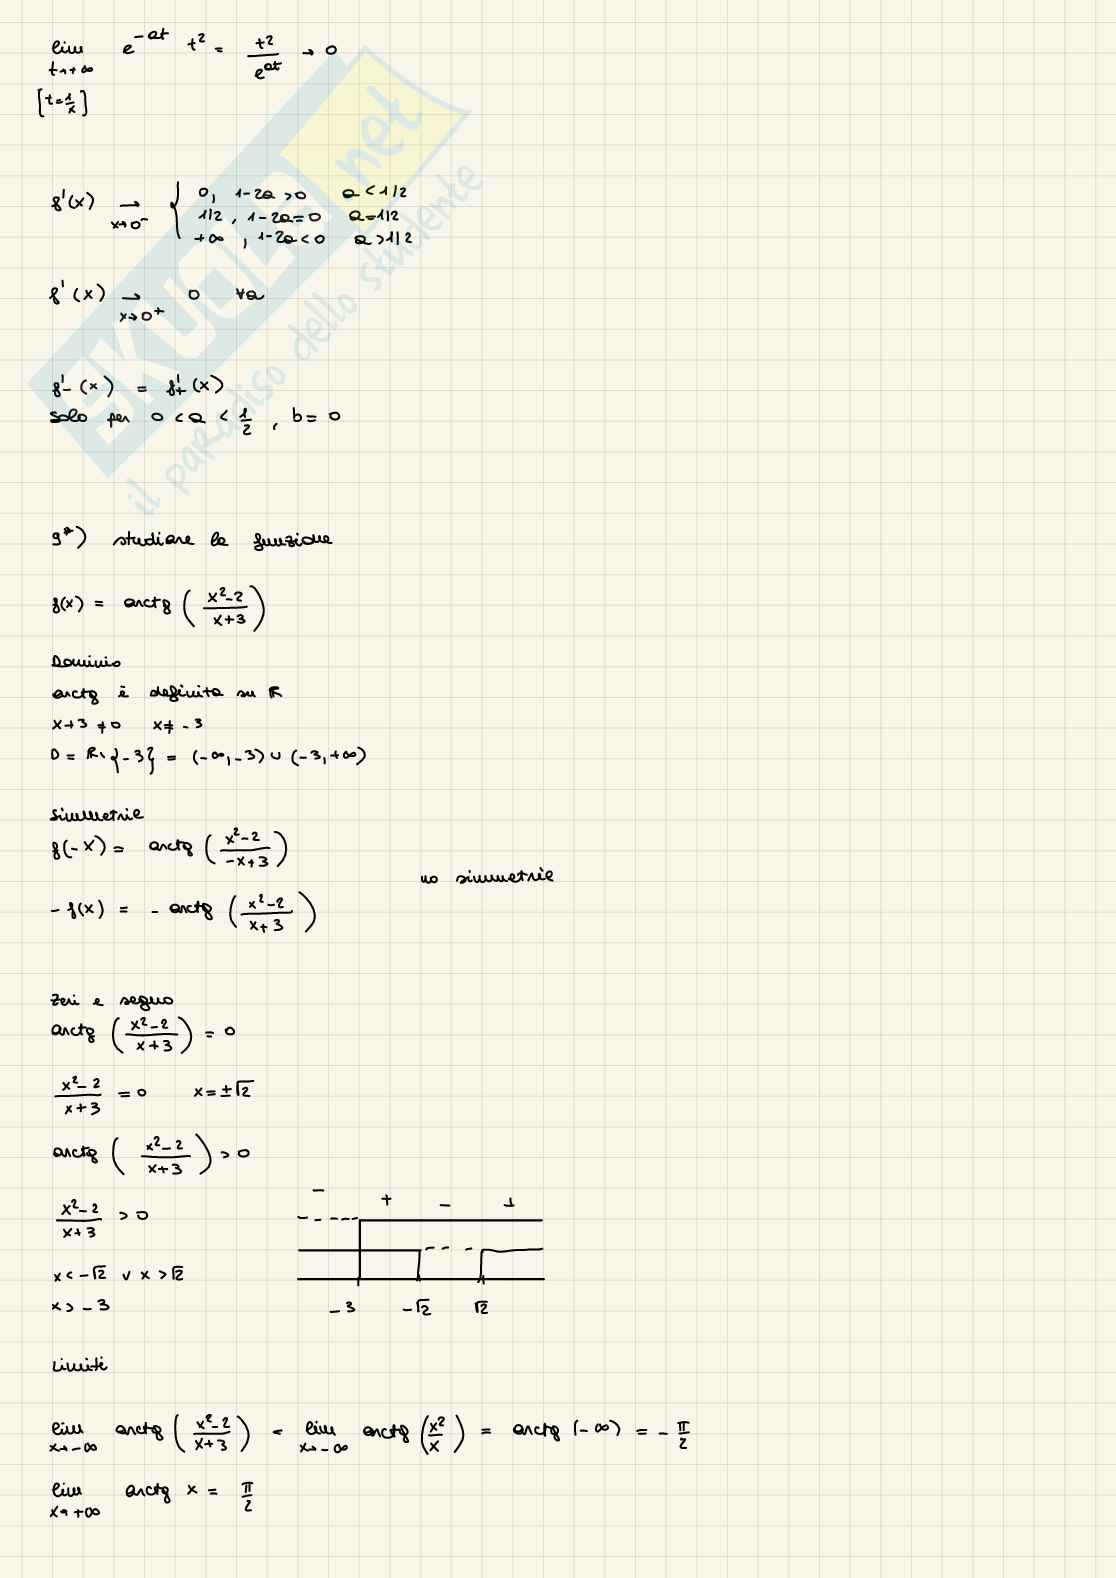 lim e^{-at} t² = t²/e^{at} → 0
t→+∞
[t=1/x]
f'(x) → x→0⁻ { 0, 1-2a>0 a<1/2
1/2, 1-2a=0 a=1/2
+∞, 1-2a<0 a>1/2
f'(x) → x→0⁺ 0 ∀a
f'₋(x) = f'₊(x)
solo per 0<a<1/2, b=0
9*) studiare la funzione
f(x) = arctg ( (x²-2)/(x+3) )
Dominio
arctg è definita su R
x+3≠0 x≠-3
D = R\{-3} = (-∞,-3)∪(-3,+∞)
Simmetrie
f(-x) = arctg ( (x²-2)/(-x+3) )
no simmetrie
-f(x) = - arctg ( (x²-2)/(x+3) )
Zeri e segno
arctg ( (x²-2)/(x+3) ) = 0
(x²-2)/(x+3) = 0 x=±√2
arctg ( (x²-2)/(x+3) ) > 0
(x²-2)/(x+3) > 0
x<-√2 ∨ x>√2
x>-3
- + - +
-3 -√2 √2
Limiti
lim x→-∞ arctg ( (x²-2)/(x+3) ) = lim x→-∞ arctg (x²/x) = arctg (-∞) = -π/2
lim x→+∞ arctg x = π/2
SKUOLA.net
il paradiso dello studente